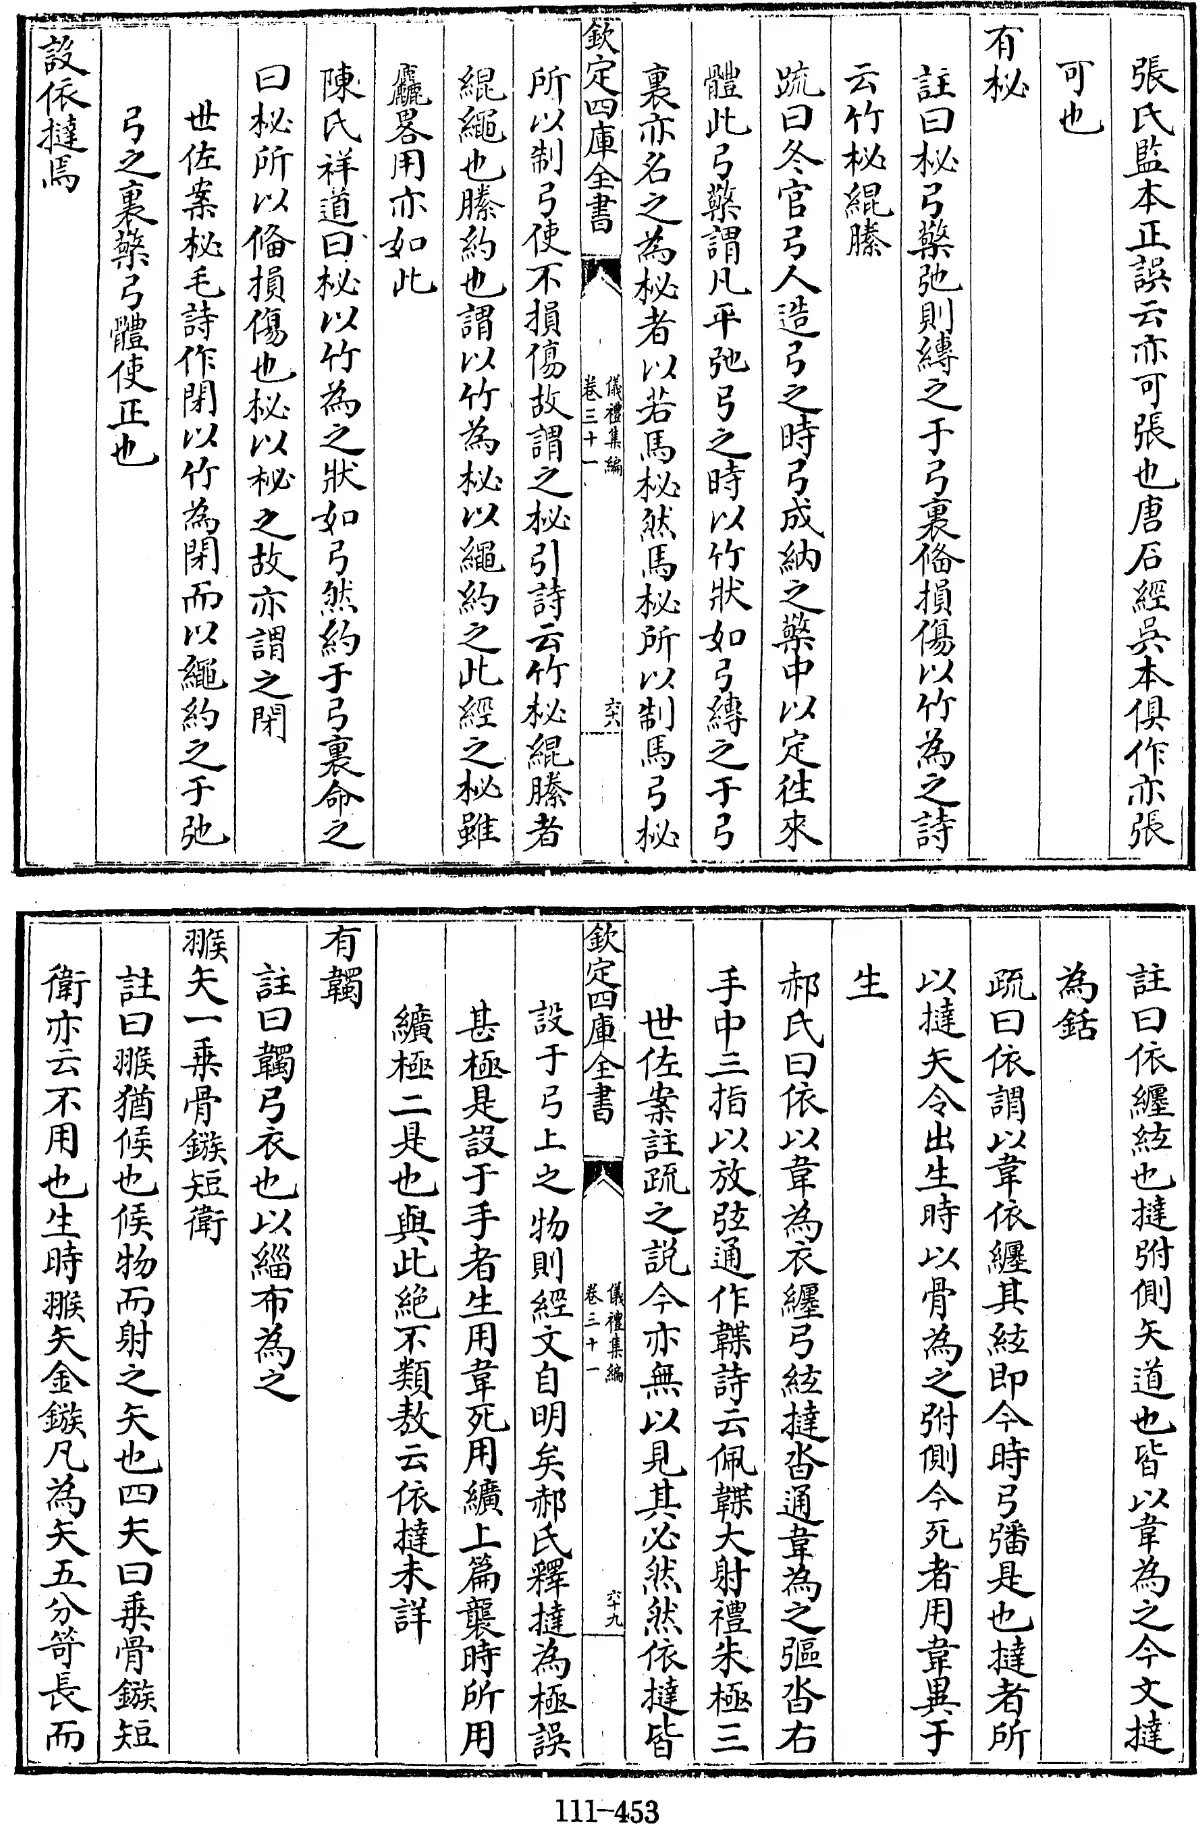 張氏監本正誤云亦可張也唐石經吳本俱作亦張
可也
有柲
註曰柲弓檠弛則縛之于弓裏備損傷以竹為之詩
云竹柲緄縢
疏曰冬官弓人造弓之時弓成納之檠中以定徃來
體此弓檠謂凡平弛弓之時以竹狀如弓縛之于弓
裏亦名之為柲者以若馬柲然馬柲所以制馬弓柲
欽定四庫全書
儀禮集編
卷三十一
六十八
所以制弓使不損傷故謂之柲引詩云竹柲緄縢者
緄繩也縢約也謂以竹為柲以繩約之此經之柲雖
麤畧用亦如此
陳氏祥道曰柲以竹為之狀如弓然約于弓裏命之
曰柲所以備損傷也柲以柲之故亦謂之閉
世佐案柲毛詩作閉以竹為閉而以繩約之于弛
弓之裏檠弓體使正也
設依撻焉
註曰依纏絃也撻弣側矢道也皆以韋為之今文撻
為銛
疏曰依謂以韋依纏其絃即今時弓𢐲是也撻者所
以撻矢令出生時以骨為之弣側今死者用韋異于
生
郝氏曰依以韋為衣纏弓絃撻沓通韋為之彄沓右
手中三指以放弦通作韘詩云佩韘大射禮朱極三
世佐案註疏之說今亦無以見其必然然依撻皆
欽定四庫全書
儀禮集編
卷三十一
六十九
設于弓上之物則經文自明矣郝氏釋撻為極誤
甚極是設于手者生用韋死用纊上篇襲時所用
纊極二是也與此絶不類敖云依撻未詳
有韣
註曰韣弓衣也以緇布為之
翭矢一乗骨鏃短衛
註曰翭猶候也候物而射之矢也四矢曰乗骨鏃短
衛亦云不用也生時翭矢金鏃凡為矢五分笴長而
111-453